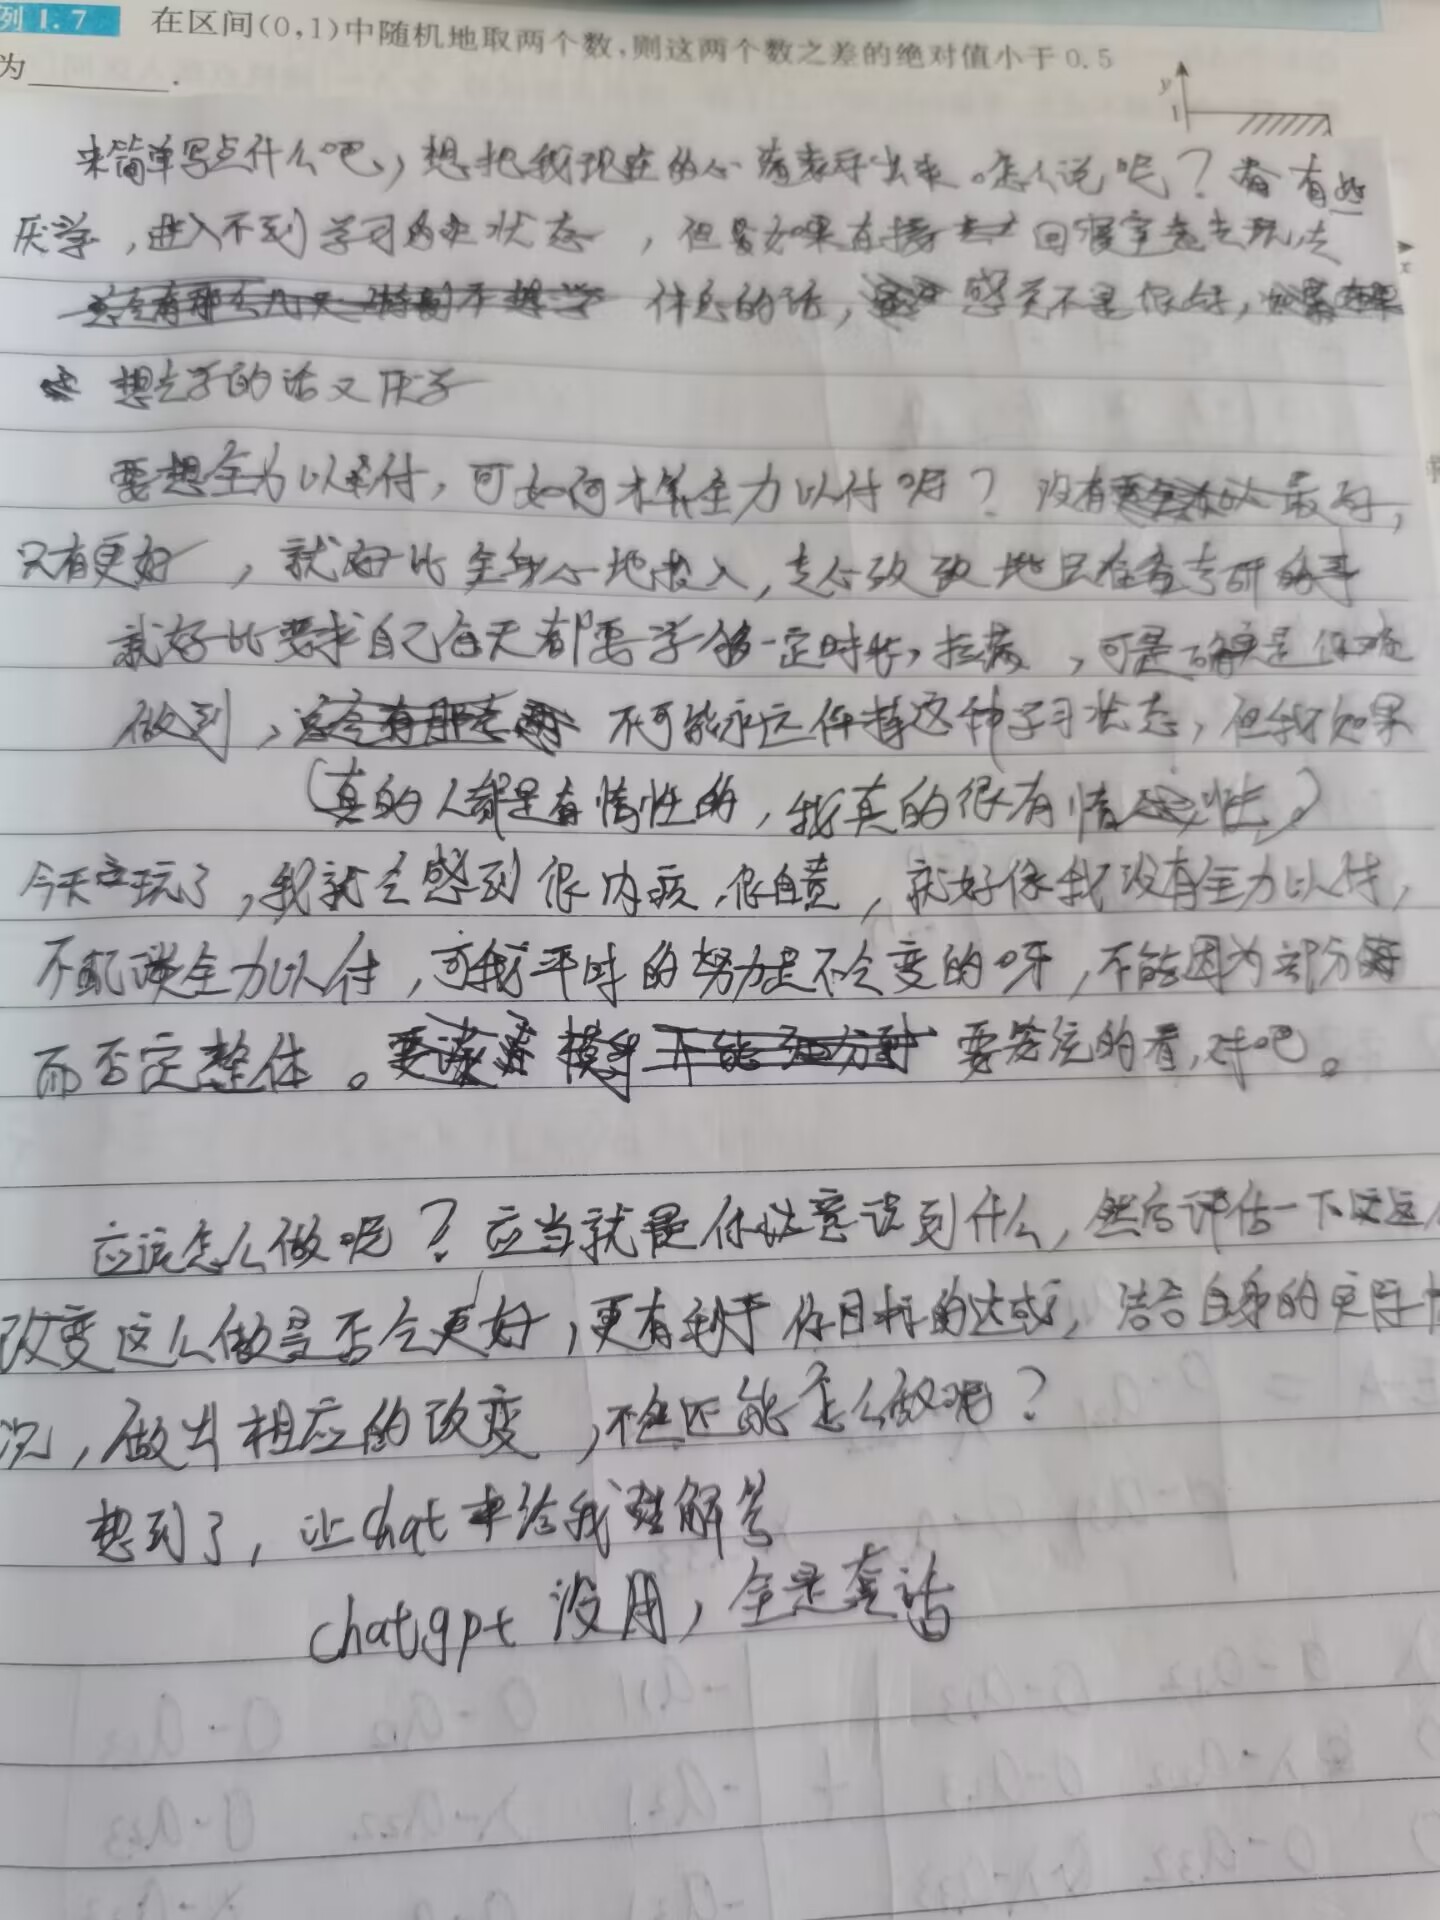 例 1.7 在区间(0,1)中随机地取两个数,则这两个数之差的绝对值小于0.5
为________.
y
1
x
来简单写点什么吧,想把我现在的心情表示出来。怎么说呢?有些
厌学,进入不到学习的状态,但是如果直接回寝室去玩,去
休息的话,感觉不是很好,
想去学的话又厌学
要想全力以赴付,可如何才算全力以付呢?没有最好,
只有更好,就好比全身心地投入,专心致致地只在备考研
就好比要求自己每天都要学够一定时长,拉满,可是确实是很难
做到,不可能永远保持这种学习状态,但我如果
(真的人都是有惰性的,我真的很有惰性)
今天去玩了,我就会感到很内疚,很自责,就好像我没有全力以付,
不配谈全力以付,可我平时的努力是不会变的呀,不能因为部分
而否定整体。要笼统的看,对吧。
应该怎么做呢?应当就是你让意识到什么,然后评估一下
改变这么做是否会更好,更有利于你目标的达成,结合自身的实际情
况,做出相应的改变,不然还能怎么做呢?
想到了,让chat来给我解答
chatgpt 没用,全是套话